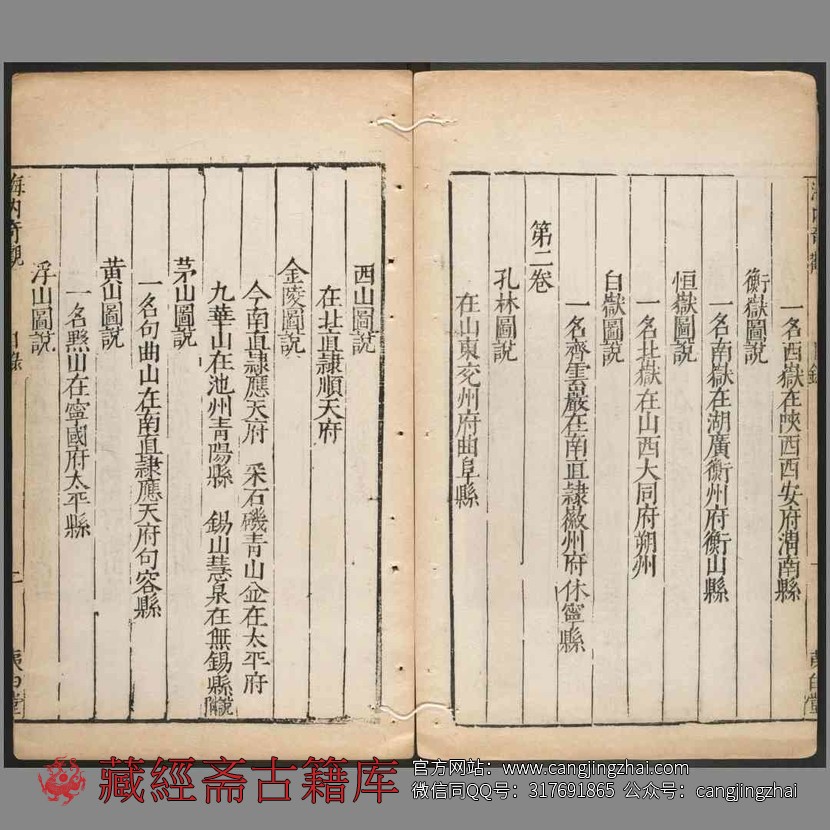 一名西嶽在陝西西安府渭南縣
衡嶽圖說
一名南嶽在湖廣衡州府衡山縣
恒嶽圖說
一名北嶽在山西大同府朔州
白嶽圖說
一名齊雲巖在南直隸徽州府休寧縣
第二卷
孔林圖說
在山東兗州府曲阜縣
西山圖說
在北直隸順天府
金陵圖說
今南直隸應天府 采石磯青山並在太平府
九華山在池州青陽縣 錫山慧泉在無錫縣
茅山圖說
一名句曲山在南直隸應天府句容縣
黄山圖說
一名黟山在寧國府太平縣
浮山圖說
海內奇觀 目錄 二 夷白堂
藏經斋古籍库
官方网站：www.cangjingzhai.com
微信同QQ号：317691865 公众号：cangjingzhai